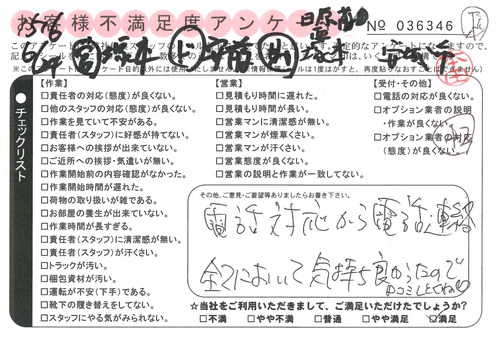 お客様不満足度アンケ
No 036346
【作業】
□責任者の対応(態度)が良くない。
□他のスタッフの対応(態度)が良くない。
□作業を見ていて不安がある。
□責任者(スタッフ)に好感が持てない。
□お客様への挨拶が出来ていない。
□ご近所への挨拶・気遣いが無い。
□作業開始前の内容確認がなかった。
□作業開始時間が遅れた。
□荷物の取り扱いが雑である。
□お部屋の養生が出来ていない。
□作業時間が長すぎる。
□責任者(スタッフ)に清潔感が無い。
□責任者(スタッフ)が汗くさい。
□トラックが汚い。
□梱包資材が汚い。
□運転が不安(下手)である。
□靴下の履き替えをしてない。
□スタッフにやる気がみられない。
【営業】
□見積もり時間に遅れた。
□見積もり時間が長い。
□営業マンに清潔感が無い。
□営業マンが煙草くさい。
□営業マンが汗くさい。
□営業態度が良くない。
□営業の説明と作業が一致してない。
【受付・その他】
□電話の対応が良くない。
□オプション業者の説明
・作業が良くない。
□オプション業者の対応
(態度)が良くない。
チェックリスト
その他、ご意見・ご要望等ありましたらお書き下さい。
電話対応から電話連絡
全てにおいて気持ち良かったので
口コミしとくね
☆当社をご利用いただきまして、ご満足いただけたでしょうか?
□不満 □やや不満 □普通 □やや満足 ☑満足